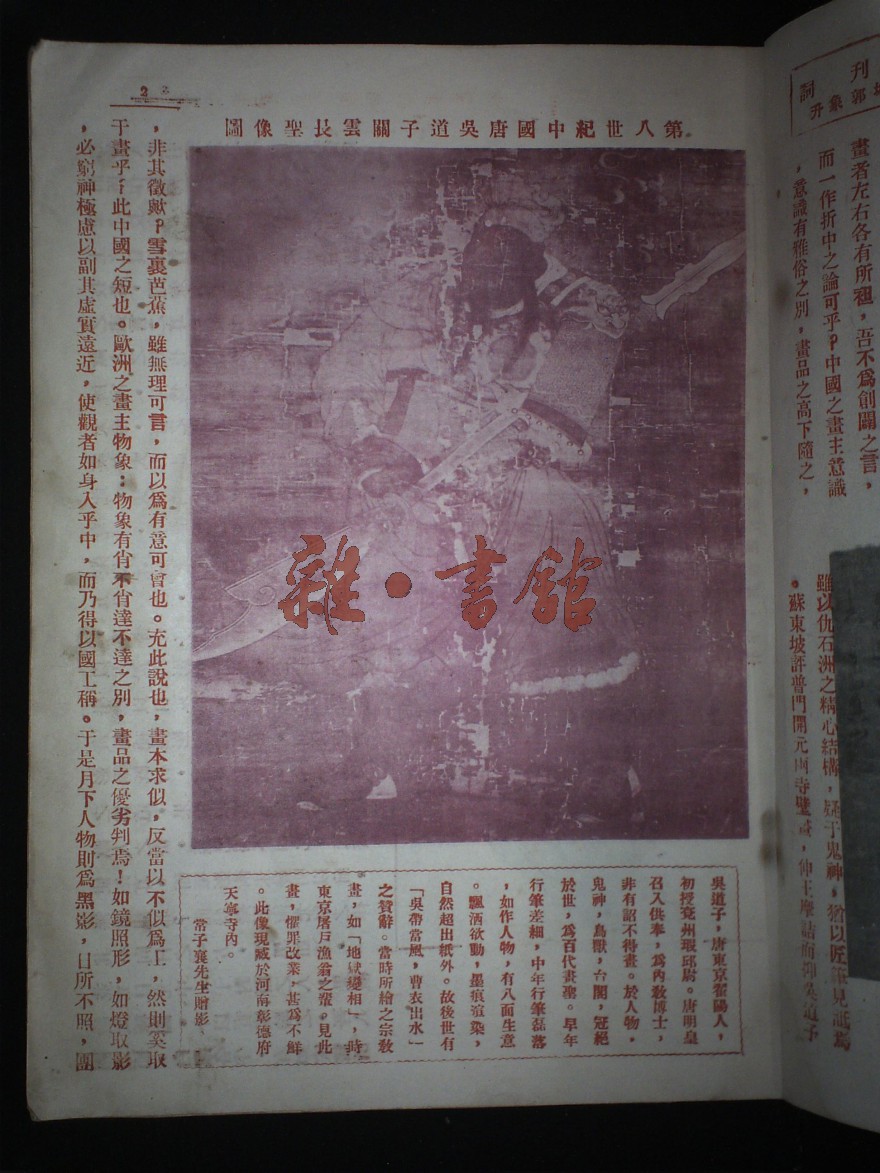 刊詞
郭象升
畫者左右各有所袒，吾不爲創闢之言，
而一作折中之論可乎？中國之畫主意識
，意識有雅俗之別，畫品之高下隨之，
雖以仇石洲之精心結構，疑于鬼神，猶以匠筆見詆焉
。蘇東坡評普門開元兩寺壁畫，伸王摩詰而抑吳道子
2
第八世紀中國唐吳道子關雲長聖像圖
雜·書館
吳道子，唐東京翟陽人，
初授兗州瑕邱尉。唐明皇
召入供奉，爲內敎博士，
非有詔不得畫。於人物，
鬼神，鳥獸，台閣，冠絕
於世，爲百代畫聖。早年
行筆差細，中年行筆磊落
，如作人物，有八面生意
。飄洒欲動，墨痕渲染，
自然超出紙外。故後世有
「吳帶當風，曹衣出水」
之贊辭。當時所繪之宗敎
畫，如「地獄變相」，時
東京屠戶漁翁之輩。見此
畫，懼罪改業，甚爲不鮮
。此像現藏於河南彰德府
天寧寺內。
常子襄先生贈影、
，非其徵歟？雪裏芭蕉，雖無理可言，而以爲有意可會也。充此說也，畫本求似，反當以不似爲工，然則奚取
于畫乎！此中國之短也。歐洲之畫主物象：物象有肖不肖達不達之別，畫品之優劣判焉！如鏡照形，如燈取影
，必窮神極慮以副其虛實遠近，使觀者如身入乎中，而乃得以國工稱。于是月下人物則爲黑影，日所不照，團